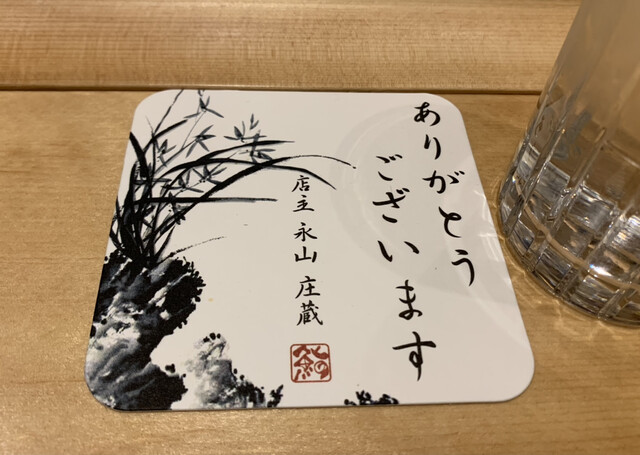 ありがとう
ございます
店主 永山 庄蔵